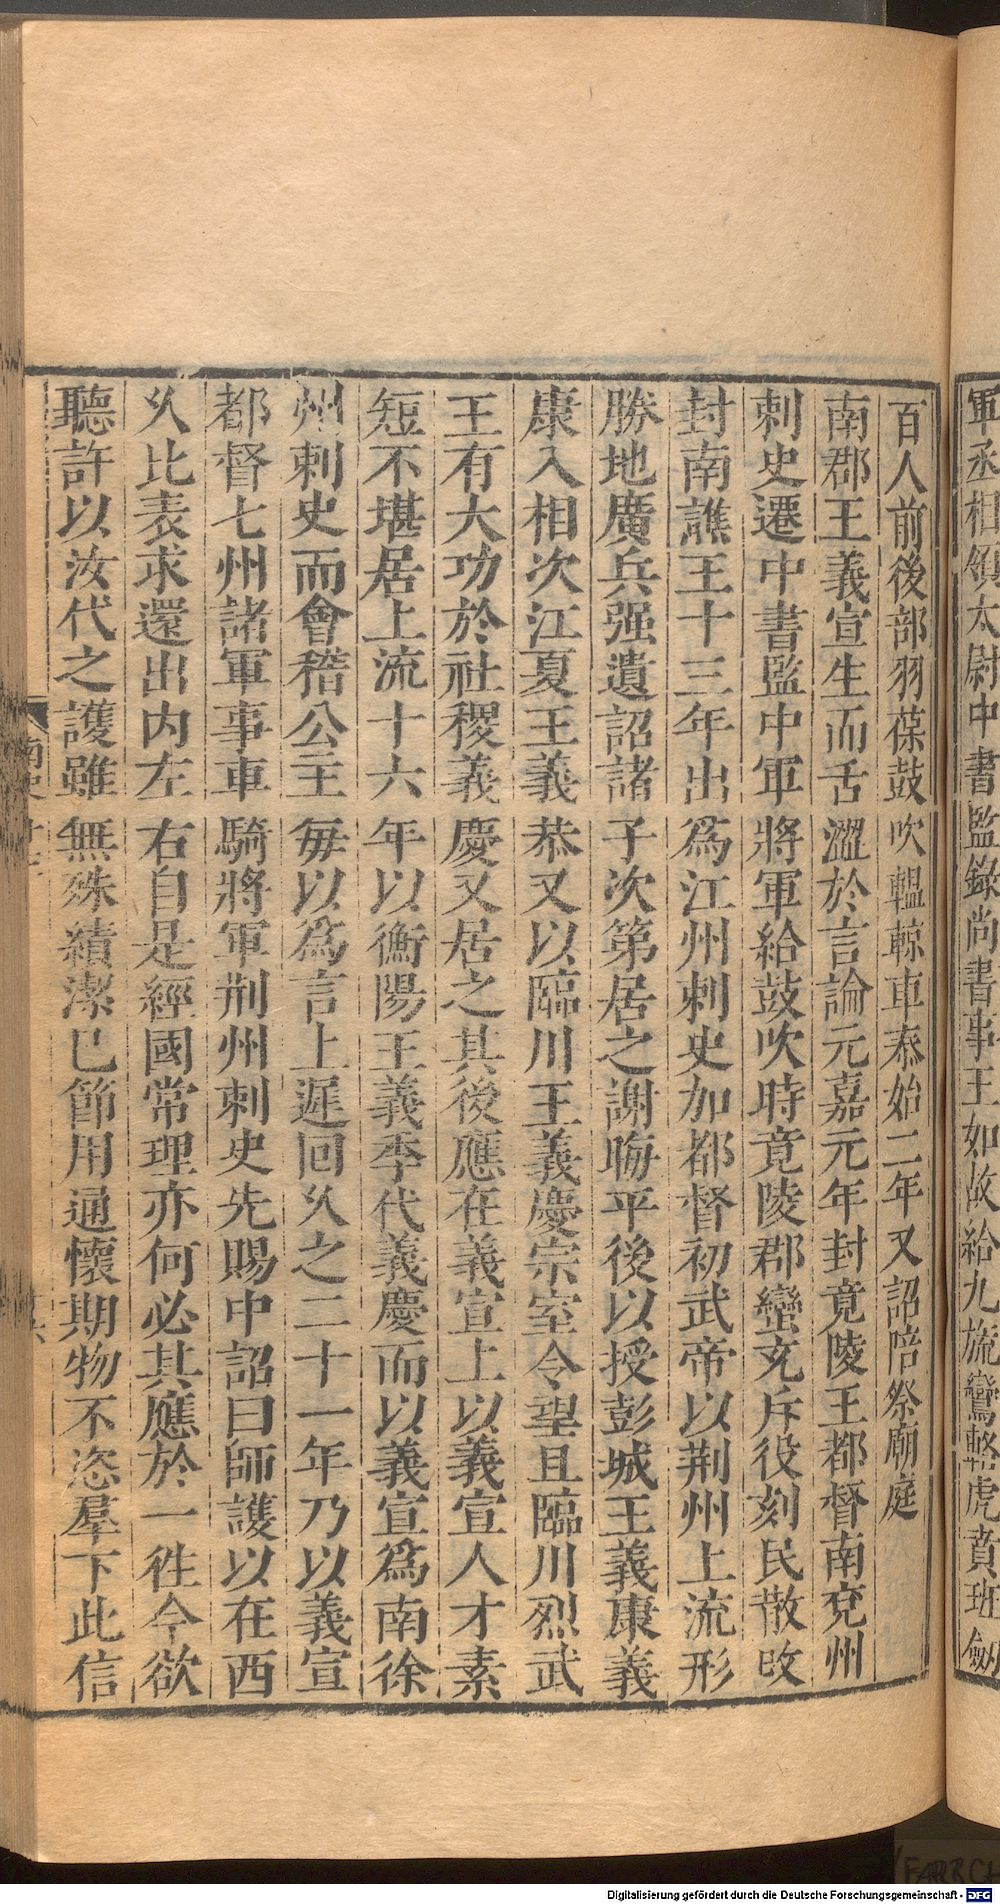 軍丞相領太尉中書監錄尚書事王如故給九旒鸞輅虎賁班劒
百人前後部羽葆鼓吹轀輬車泰始二年又詔陪祭廟庭
南郡王義宣生而舌澀於言論元嘉元年封竟陵王都督南兗州
刺史遷中書監中軍將軍給鼓吹時竟陵郡蠻充斥役刻民散改
封南譙王十三年出爲江州刺史加都督初武帝以荆州上流形
勝地廣兵强遺詔諸子次第居之謝晦平後以授彭城王義康義
康入相次江夏王義恭又以臨川王義慶宗室令望且臨川烈武
王有大功於社稷義慶又居之其後應在義宣上以義宣人才素
短不堪居上流十六年以衡陽王義季代義慶而以義宣爲南徐
州刺史而會稽公主每以爲言上遲回久之二十一年乃以義宣
都督七州諸軍事車騎將軍荆州刺史先賜中詔曰師護以在西
久比表求還出内左右自是經國常理亦何必其應於一徃今欲
聽許以汝代之護雖無殊績潔已節用通懷期物不恣羣下此信
南史
Digitalisierung gefördert durch die Deutsche Forschungsgemeinschaft - DFG